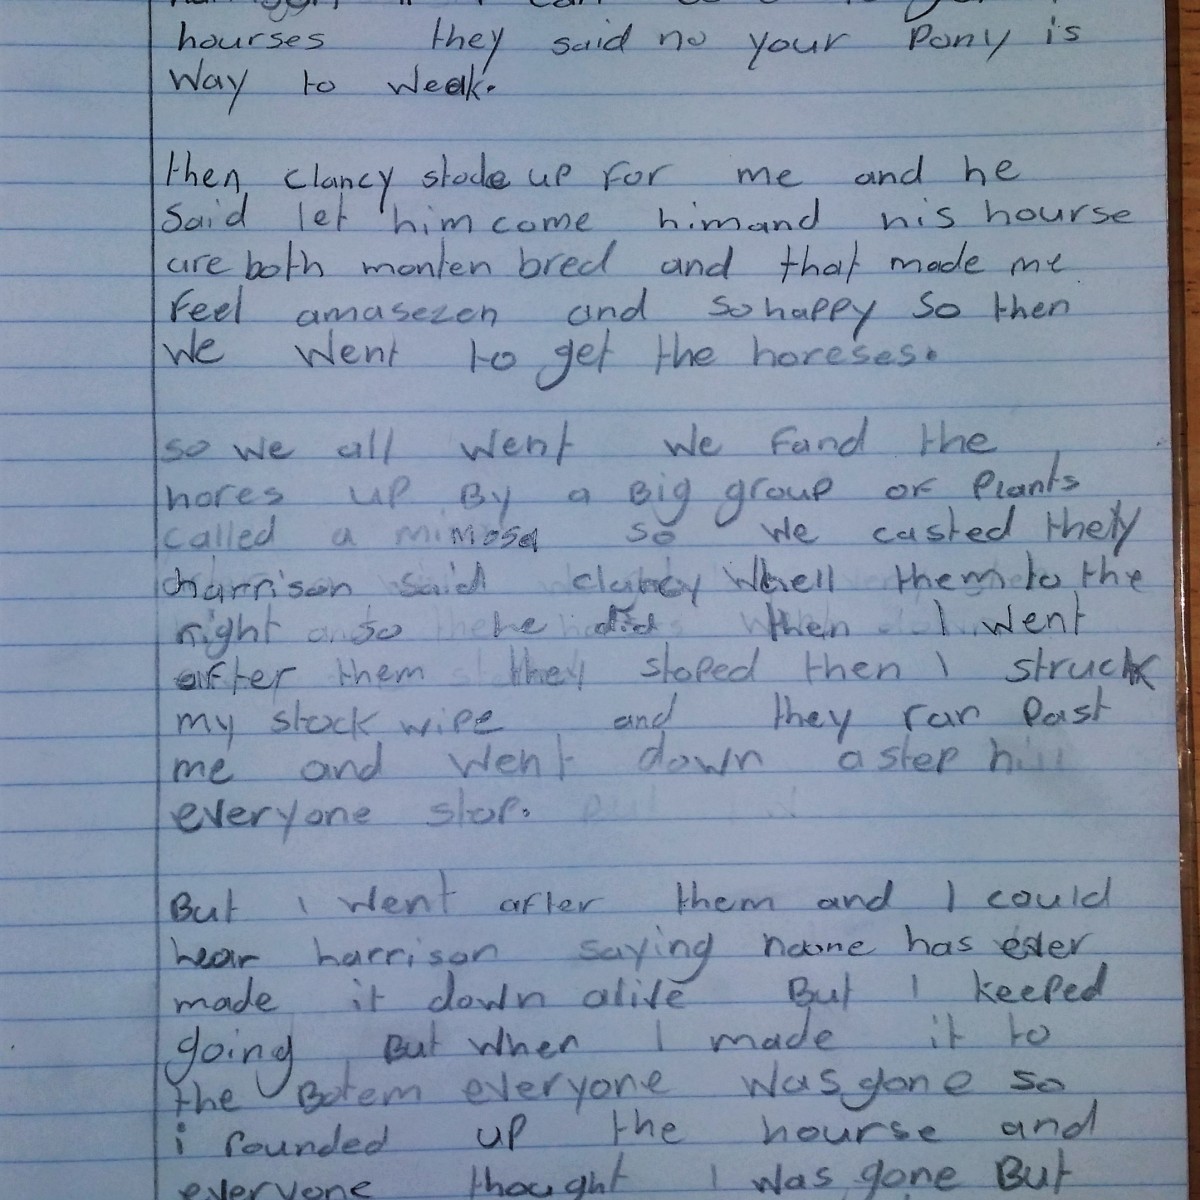 hourses they said no your Pony is
way to weak.
then clancy stode up for me and he
said let him come himand his hourse
are both monten bred and that made me
feel amasezen and sohappy so then
we went to get the horeses.
so we all went we fand the
hores up By a Big group of Plants
called a mimosa so we casted they
harrison said clancy wheell them to the
right so he did then I went
after them they stoped then I struck
my stock wipe and they ran Past
me and went down a step hill
everyone stop.
But i went after them and I could
hear harrison saying noone has ever
made it down alive But I keeped
going But when I made it to
the Botem everyone was gone so
i rounded up the hourse and
everyone thought I was gone But